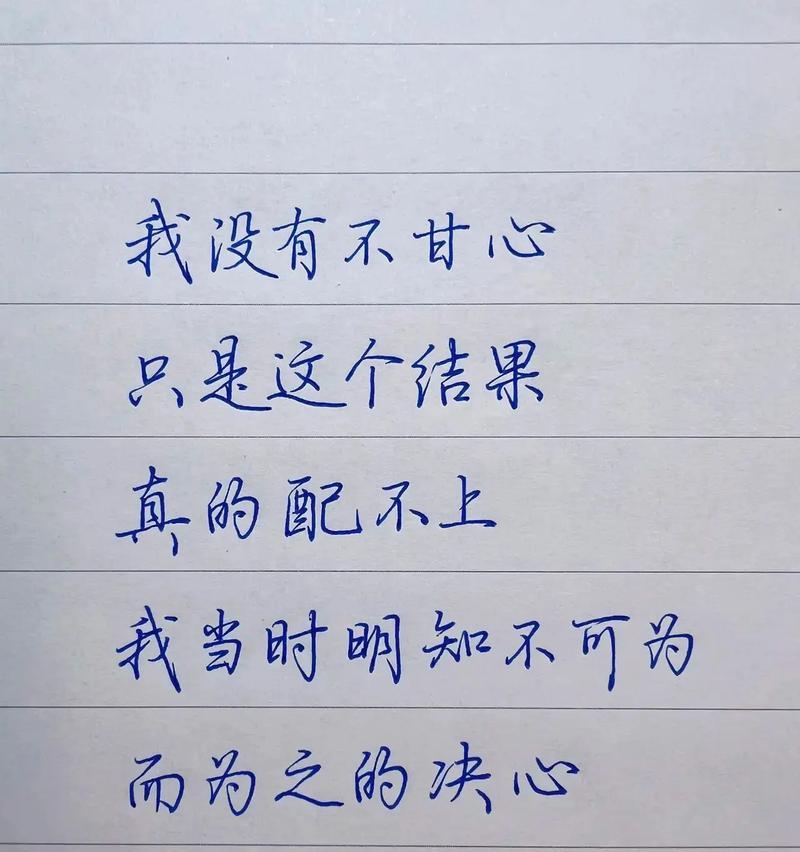 我没有不甘心
只是这个结果
真的配不上
我当时明知不可为
而为之的决心